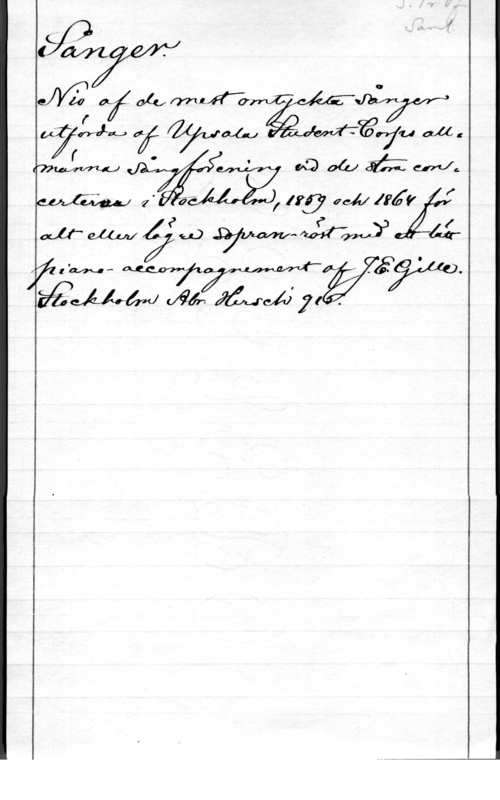 S. Tr. Of
Saml.
Sånger.
Nio af de mest omtyckta Sånger
utförda af Upsala Student-Corps all-
männa Sångförening vid de stora con-
certerna i Stockholm, 1859 och 1864 för
alt eller lägre Sopran-röst med ett lätt
piano-accompagnement af J.E. Gille.
Stockholm Abr. Hirsch